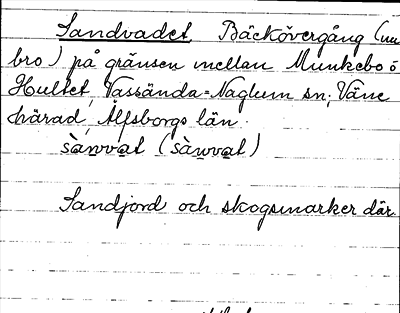 Sandvadet, Bäckövergång (nu
bro) på gränsen mellan Munkebo o
Hultet, Vassända-Naglum sn, Väne
härad, Älfsborgs län.
sànvvat (sànvvat)
Sandjord och skogsmarker där.